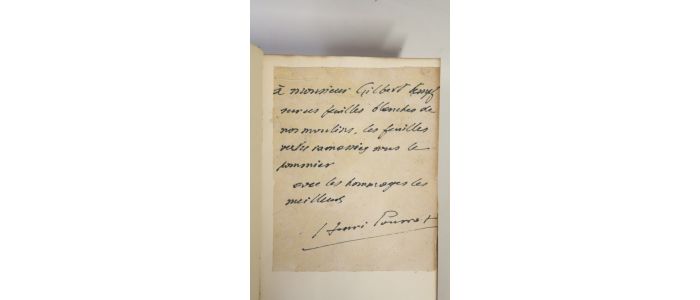 à monsieur Gilbert Kempf
sur ces feuilles blanches de
nos moulins, les feuilles
vertes ramassées sous le
pommier
avec les hommages les
meilleurs
Henri Pourrat